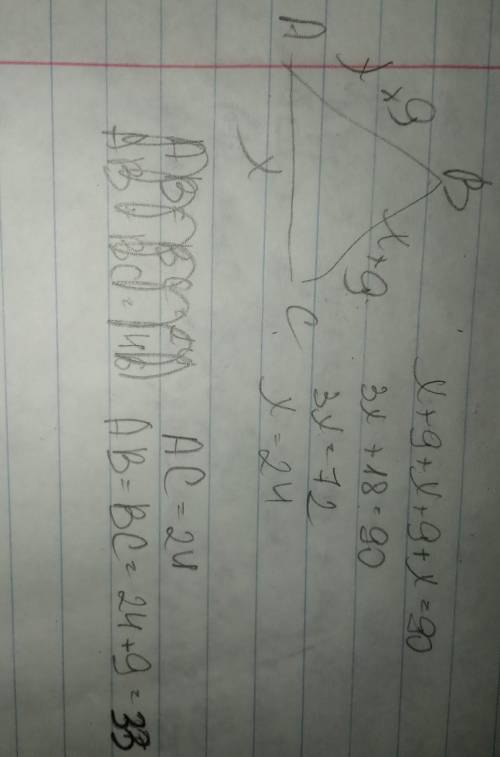 B
x+9 x+9
A C
x
x+9+x+9+x=90
3x+18=90
3x=72
x=24
AC=24
AB=BC=24+9=33